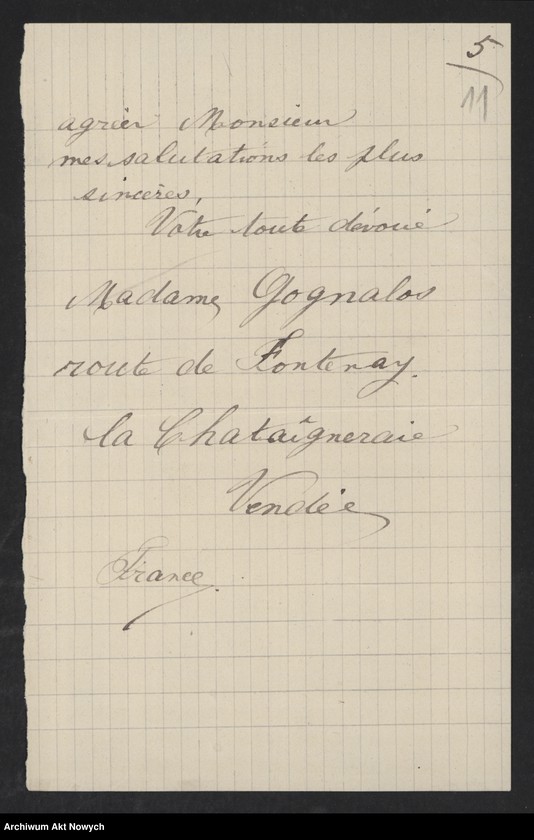 5
11
agréer Monsieur
mes salutations les plus
sincères,
Votre toute dévoué
Madame Gognalos
route de Fontenay.
la Chataîgneraie
Vendée
France.
Archiwum Akt Nowych